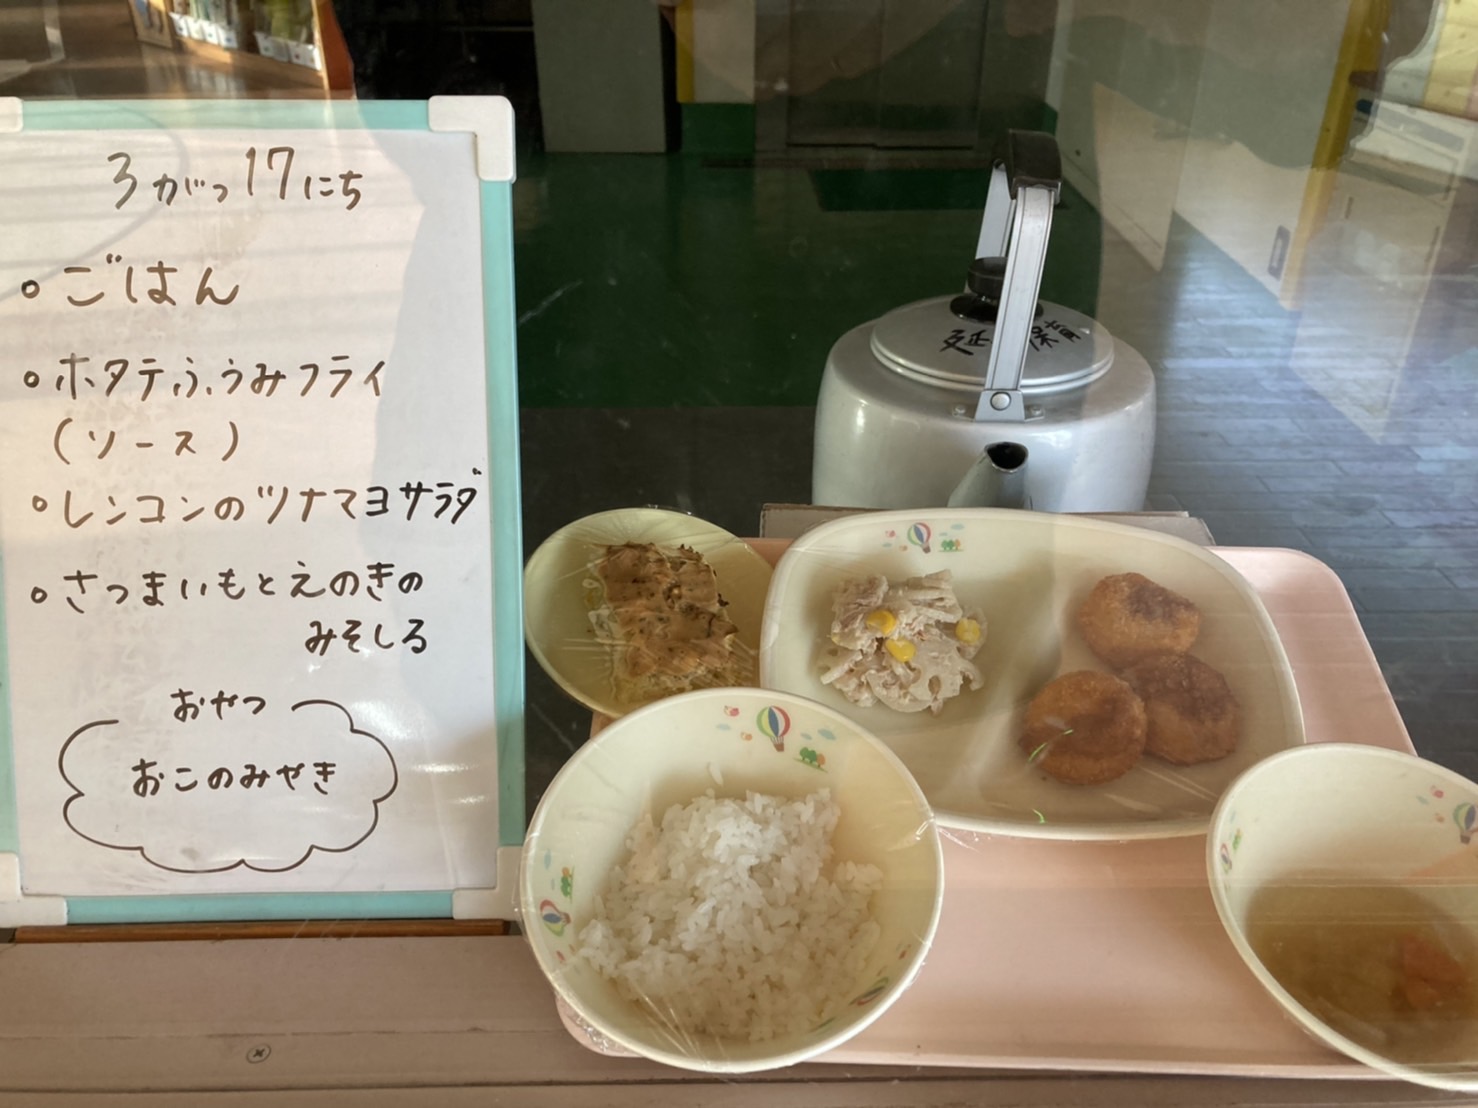 3がっ17にち
○ごはん
○ホタテふうみフライ
(ソース)
○レンコンのツナマヨサラダ
○さつまいもとえのきの
みそしる
おやつ
おこのみやき
延 保育